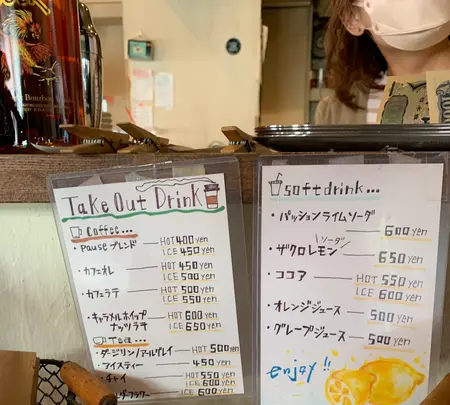 Bourbon
Take Out Drink
Coffee...
・Pauseブレンド HOT 400 yen
ICE 450 yen
・カフェオレ HOT 450 yen
ICE 500 yen
・カフェラテ HOT 500 yen
ICE 550 yen
・キャラメルホイップ HOT 600 yen
ナッツラテ ICE 650 yen
Tea...
・ダージリン/アールグレイ HOT 500 yen
・アイスティー 450 yen
・チャイ HOT 550 yen
ICE 600 yen
フラワー 600 yen
soft drink...
・パッションライムソーダ
600 yen
ソーダ
・ザクロレモン 650 yen
・ココア HOT 550 yen
ICE 600 yen
・オレンジジュース 500 yen
・グレープジュース 500 yen
enjoy!!